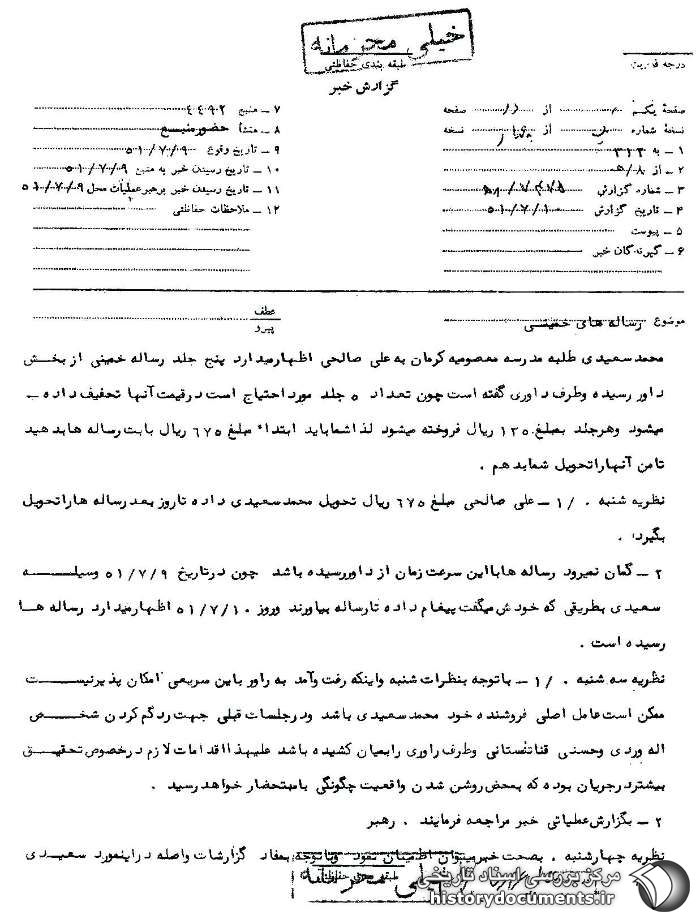 خیلی محرمانه
طبقه بندی حفاظتی
گزارش خبر
درجه فوریت
صفحه یکم از صفحه
نسخه شماره از نسخه
۱ ـ به ۳۱۲
۲ ـ از ۸/ھ
۳ ـ شماره گزارش
۴ ـ تاریخ گزارش ۵۱/۷/۱۰
۵ ـ پیوست
۶ ـ گیرندگان خبر
۷ ـ منبع ۴۴۹۲
۸ ـ منشأ حضور منبع
۹ ـ تاریخ وقوع ۵۱/۷/۹
۱۰ ـ تاریخ رسیدن خبر به منبع ۵۱/۷/۹
۱۱ ـ تاریخ رسیدن خبر برهبر عملیات محل ۵۱/۷/۹
۱۲ ـ ملاحظات حفاظتی
موضوع رساله های خمینی
عطف
پیرو
محمد سعیدی طلبه مدرسه معصومیه کرمان به علی صالحی اظهارمیدارد پنج جلد رساله خمینی از بخش
داور رسیده وطرف داوری گفته است چون تعداد ۵ جلد مورد احتیاج است درقیمت آنها تخفیف داده ـ
میشود وهرجلد بمبلغ ۱۳۵ ریال فروخته میشود لذا شما باید ابتداء مبلغ ۶۷۵ ریال بابت رساله ها بدهید
تا من آنها را تحویل شما بدهم .
نظریه شنبه . ۱/ ـ علی صالحی مبلغ ۶۷۵ ریال تحویل محمد سعیدی داده تا روز بعد رساله ها را تحویل
بگیرد .
۲ ـ گمان نمیرود رساله ها با این سرعت زمان از داور رسیده باشد چون در تاریخ ۵۱/۷/۹ وسیله
سعیدی بطریقی که خودش میگفت پیغام داده تا رساله بیاورند وروز ۵۱/۷/۱۰ اظهارمیدارد رساله ها
رسیده است .
نظریه سه شنبه . ۱/ ـ باتوجه بنظرات شنبه واینکه رفت وآمد به راور باین سریعی امکان پذیرنیست
ممکن است عامل اصلی فروشنده خود محمد سعیدی باشد ودرجلسات قبلی جهت ردگم کردن شخص
اله وردی وحسنی قناتغستانی وطرف راوری رابمیان کشیده باشد علیهذا اقدامات لازم درخصوص تحقیق
بیشتر در جریان بوده که بمحض روشن شدن واقعیت چگونگی باستحضار خواهد رسید .
۲ ـ بگزارش عملیاتی خبر مراجعه فرمایند . رهبر
نظریه چهارشنبه . بصحت خبر میتوان اطمینان نمود وباتوجه بمفاد گزارشات واصله دراینمورد سعیدی
طبقه بندی حفاظتی
خیلی محرمانه
مرکز بررسی اسناد تاریخی
historydocuments.ir